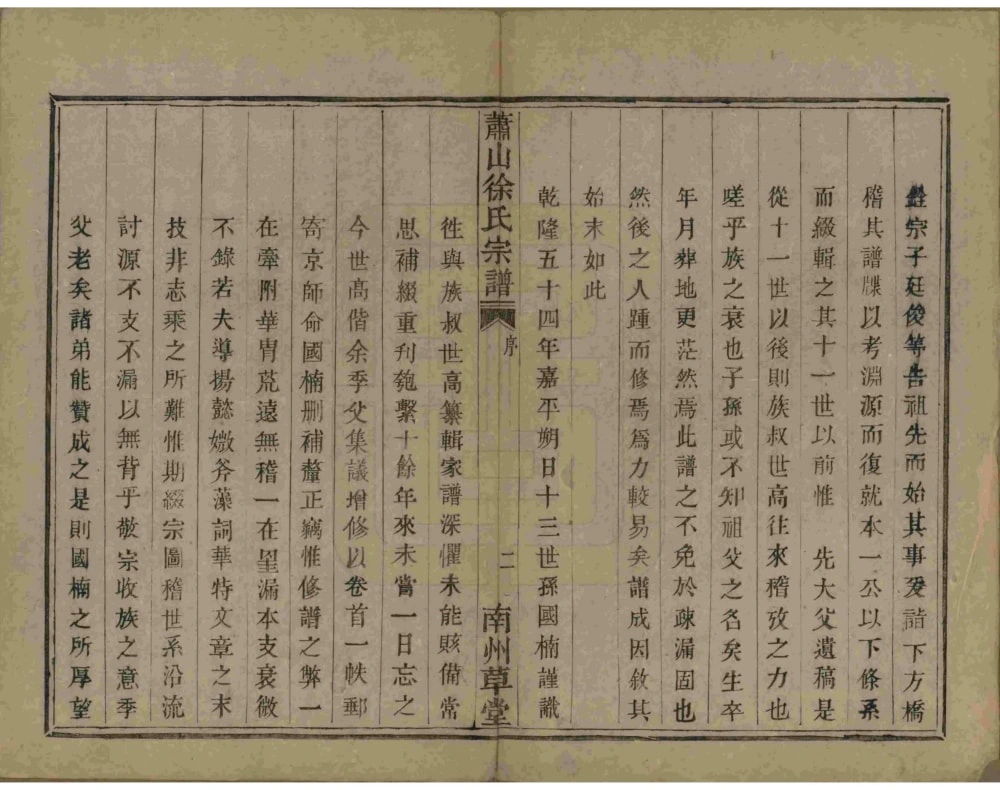 鞋宗子廷俊等告祖先而始其事爰詣下方橋
稽其譜牒以考淵源而復就本一公以下條系
而綴輯之其十一世以前惟　先大父遺稿是
從十一世以後則族叔世高往來稽攷之力也
嗟乎族之衰也子孫或不知祖父之名矣生卒
年月葬地更茫然焉此譜之不免於疎漏固也
然後之人踵而修焉爲力較易矣譜成因敘其
始末如此
乾隆五十四年嘉平朔日十三世孫國楠謹識
蕭山徐氏宗譜
序
二
南州草堂
徃與族叔世高纂輯家譜深懼未能賅備常
思補綴重刋匏繫十餘年來未嘗一日忘之
今世高偕余季父集議增修以卷首一帙郵
寄京師命國楠刪補釐正竊惟修譜之弊一
在牽附華胄荒遠無稽一在罣漏本支衰微
不錄若夫導揚懿媺斧藻詞華特文章之末
技非志乘之所難惟期綴宗圖稽世系沿流
討源不支不漏以無背乎敬宗收族之意季
父老矣諸弟能贊成之是則國楠之所厚望